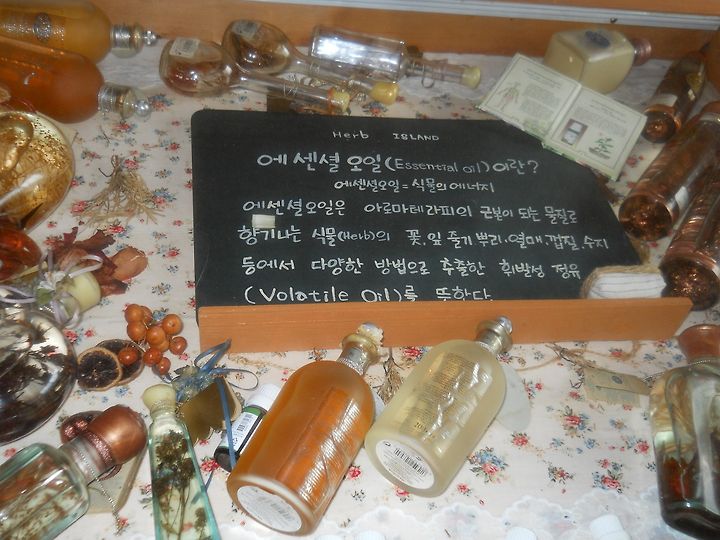 Herb ISLAND
에센셜오일(Essential oil)이란?
에센셜오일=식물의에너지
에센셜오일은 아로마테라피의 근본이 되는 물질로
향기나는 식물(Herb)의 꽃.잎 줄기 뿌리.열매.껍질.수지
등에서 다양한 방법으로 추출한 휘발성 정유
(Volatile Oil)를 뜻한다